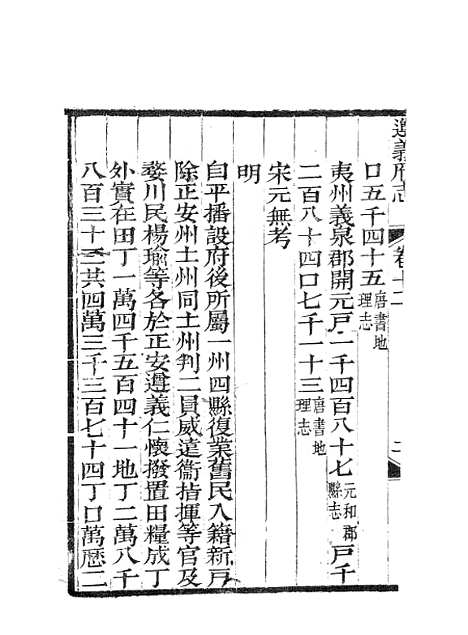 遵義府志 卷十二 二
口五千四十五唐書地理志
夷州義泉郡開元戶一千四百八十七元和郡縣志戶千
二百八十四口七千一十三唐書地理志
宋元無考
明
自平播設府後所屬一州四縣復業舊民入籍新戶
除正安州土州同土州判二員威遠衞指揮等官及
婺川民楊瑜等各於正安遵義仁懷撥置田糧成丁
外實在田丁一萬四千五百四十一地丁二萬八千
八百三十三共四萬三千三百七十四丁口萬曆二